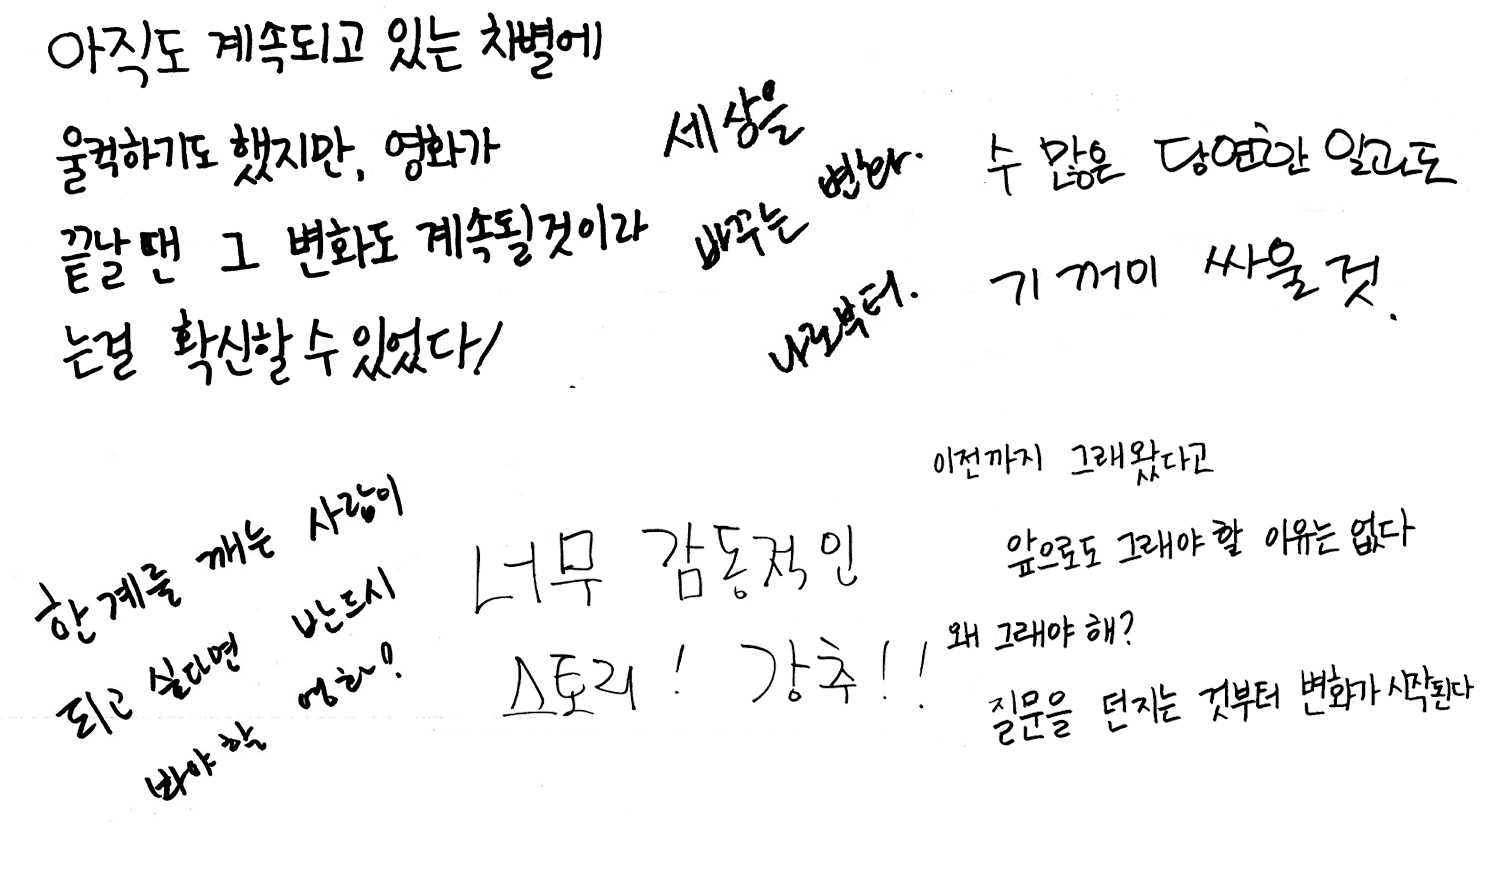 아직도 계속되고 있는 차별에
울컥하기도 했지만, 영화가
끝날 땐 그 변화도 계속될것이라
는걸 확신할 수 있었다!
세상을
바꾸는 변화.
나로부터.
수 많은 당연한 일과도
기꺼이 싸울 것.
한계를 깨는 사람이
되고 싶다면 반드시
봐야할 영화!
너무 감동적인
스토리! 강추!!
이전까지 그래왔다고
앞으로도 그래야 할 이유는 없다
왜 그래야 해?
질문을 던지는 것부터 변화가 시작된다